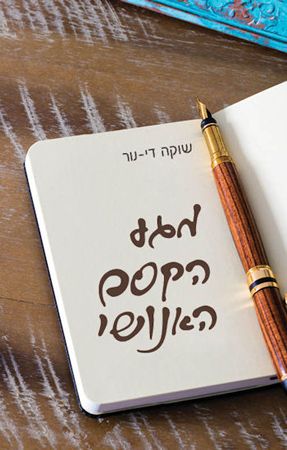 שוקה די-נור
מגע
הקסם
האנושי